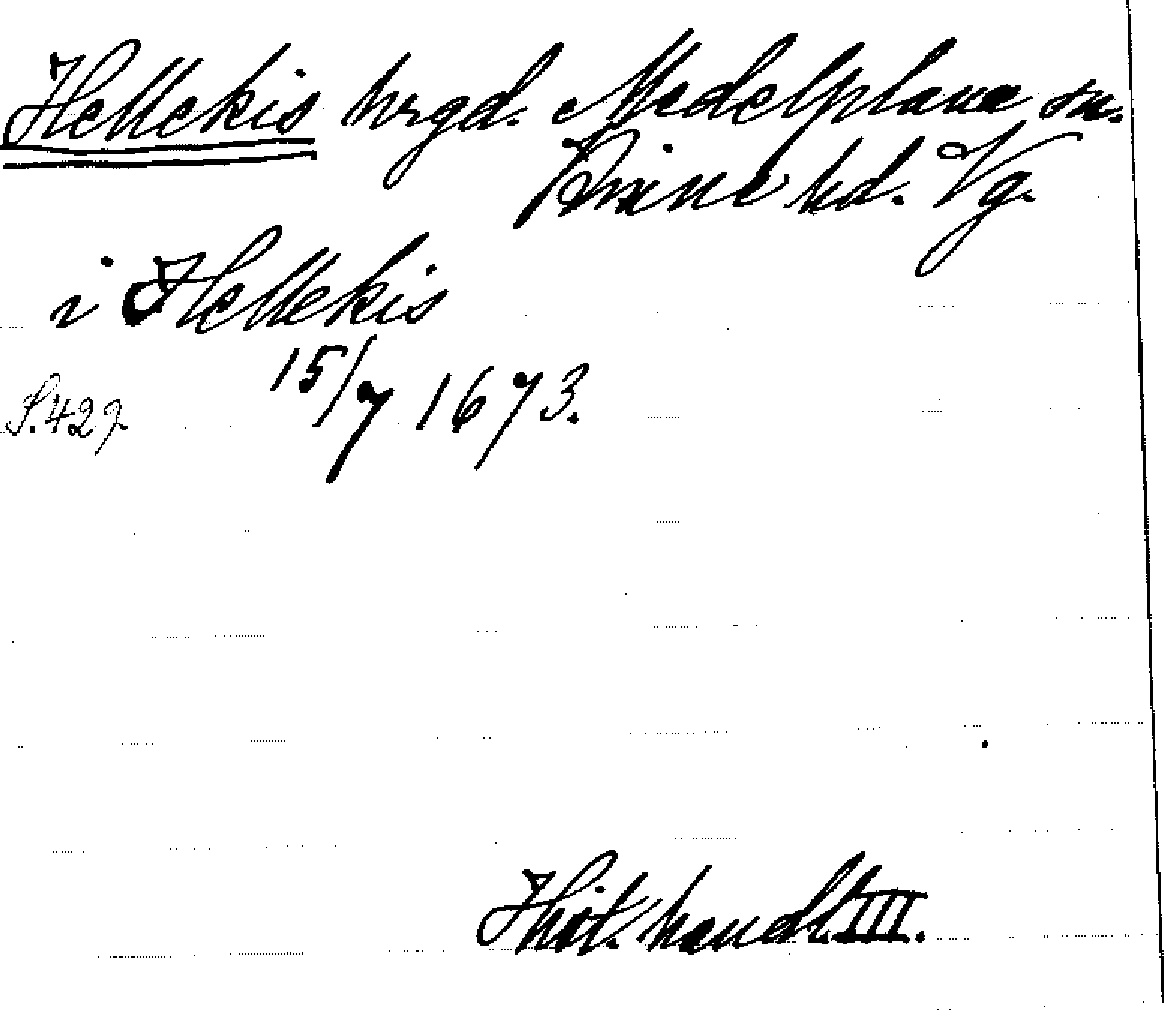 Hellekis hrgd. Medelplana sn.
Kinne hd. Vg.
i Hellekis
15/7 1673.
S. 427.
Hist. handl. III.